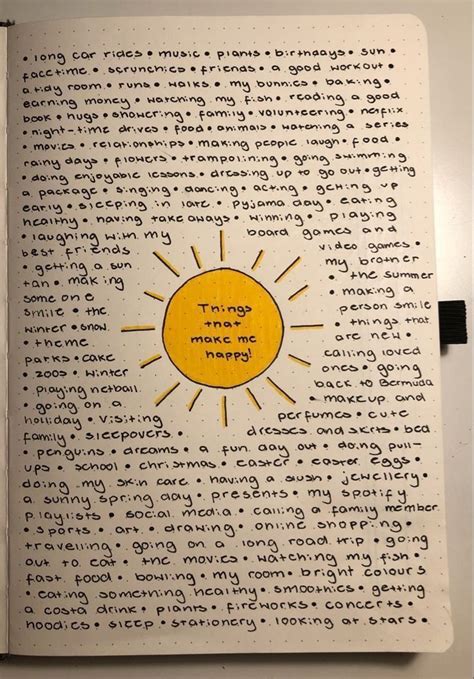 • long car rides • music • plants • birthdays • sun •
facetime • scrunchies • friends • a good workout •
a tidy room • runs • walks • my bunnies • baking •
earning money • watching my fish • reading a good
book • hugs • showering • family • volunteering • netflix
• night-time drives • food • animals • watching a series
• movies • relationships • making people laugh • food •
rainy days • flowers • trampolining • going swimming
• doing enjoyable lessons • dressing up to go out • getting
a package • singing • dancing • acting • getting up
early • sleeping in late • pyjama day • eating
healthy • having takeaways • winning • playing
• laughing with my board games and
best friends video games •
• getting a sun my brother
tan • making • the summer
some one • making a
smile • the person smile
winter • snow • • things that
• theme are new •
parks • cake calling loved
• zoos • winter ones • going
• playing netball back to Bermuda
• going on a • makeup and
holliday • visiting perfumes • cute
family • sleepovers • dresses and skirts • bed
• penguins • dreams • a fun day out • doing pull-
ups • school • christmas • easter • easter eggs •
doing my skin care • having a slush • jewellery •
a sunny spring day • presents • my spotify
playlists • social media • calling a family member
• sports • art • drawing • online shopping •
travelling • going on a long road trip • going
out to eat • the movies • watching my fish •
fast food • bowling • my room • bright colours
• eating something healthy • smoothies • getting
a costa drink • plants • fireworks • concerts •
hoodies • sleep • stationery • looking at stars •
Things
that
make me
happy!